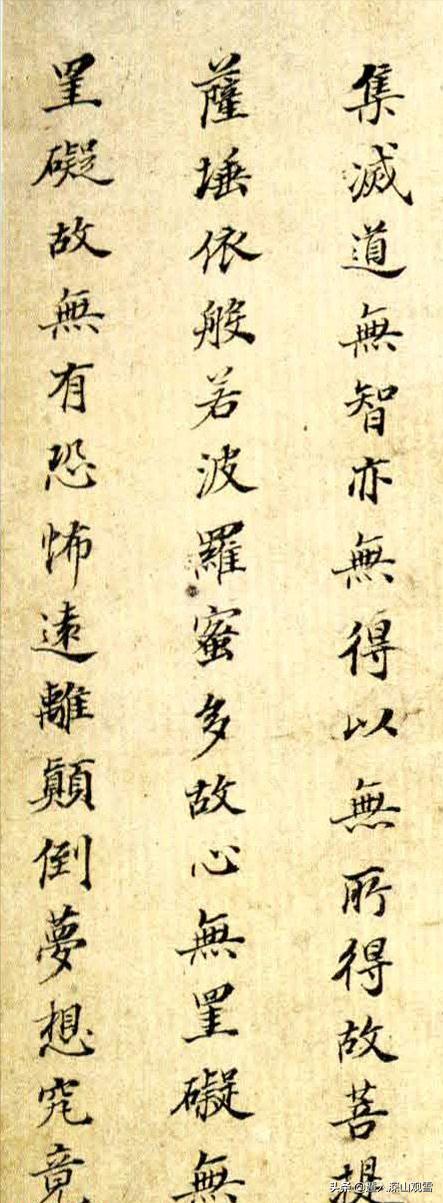 集滅道無智亦無得以無所得故菩提
薩埵依般若波羅蜜多故心無罣礙無
罣礙故無有恐怖遠離顛倒夢想究竟
头条 @深山观雪